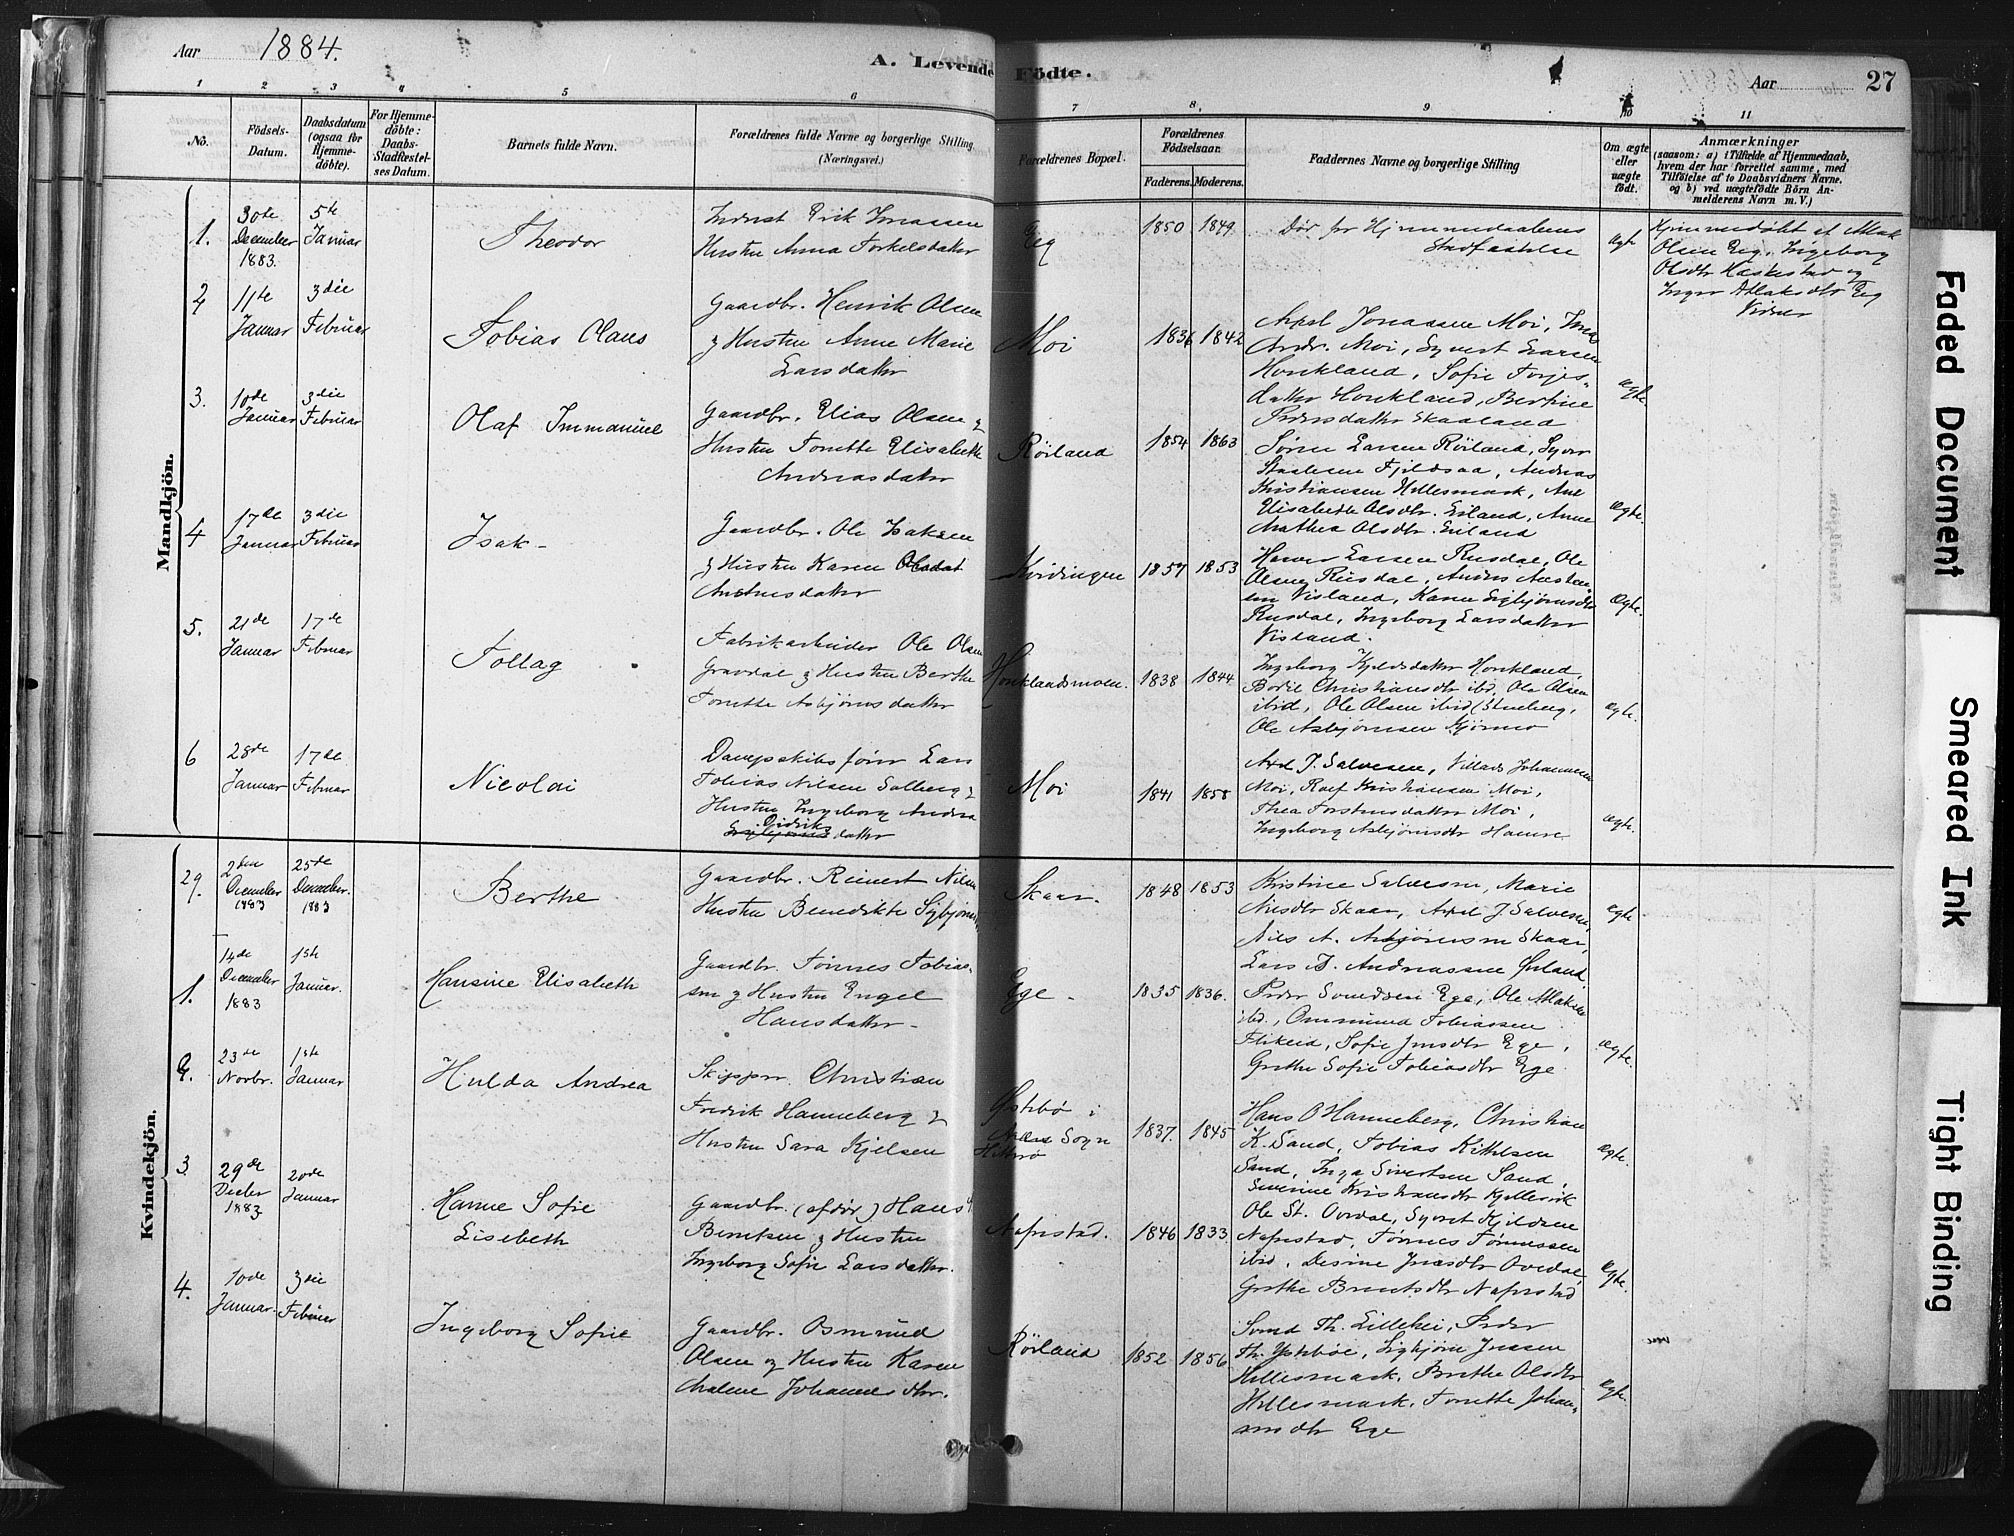 Aar 1884.
A. Levende Födte.
Aar
27
1 2 3 4 5 6 7 8. 9 10 11
No.
Födsels-Datum.
Daabsdatum (ogsaa for Hjemme-döbte).
For Hjemme-döbte: Daabs-Stadfæstel-ses Datum.
Barnets fulde Navn.
Forældrenes fulde Navne og borgerlige Stilling (Næringsvei.)
Forældrenes Bopæl.
Forældrenes Födselsaar.
Faderens. Moderens.
Faddernes Navne og borgerlige Stilling
Om ægte eller uægte födt.
Anmærkninger
(saasom: a) i Tilfælde af Hjemmedaab,
hvem der har forrettet samme, med
Tilföielse af to Daabsvidners Navne,
og b) ved uægtefödte Börn An-
melderens Navn m. V.)
Mandkjön.
1.
30te December 1883.
5te Januar
Theodor
Erik Jonassen
Hustru Anna Torkelsdatter
Eeg
1850 1849
Død før Hjemmedaabens
Stadfæstelse
ægte
Hjemmedøbt af Atlak
Olsen Eeg, Ingeborg
Olsdtr Haskestad og
Inger Atlaksdtr Eeg
2
11te Januar
3die Februar
Tobias Olaus
Gaardbr. Henrik Olsen
& Hustru Anne Marie
Larsdatter
Moi
1836 1842
Axel Jonassen Moi,
Andr. Moi, Syvert Larsen
Honkland, Sofie Torjes-
datter Honkland, Bertine
Pedersdatter Skaaland
ægte.
3.
10de Januar
3die Februar
Olaf Immanuel
Gaardbr. Elias Olsen &
Hustru Tonette Elisabeth
Andreasdatter
Röiland
1854 1863
Søren Larsen Röiland,
Staalesen Fjeldsaa, Andreas
Kristiansen Hellesmark, Ane
Elisabeth Olsdtr. Eiland, Anne
Mathea Olsdtr. Eiland
ægte.
4
17de Januar
3die Februar
Isak
Gaardbr. Ole Isaksen
& Hustru Karen
Andreasdatter
Kvidingen
1857 1853
Larsen Rusdal, Ole
Olsen Rusdal,
Visland, Karen Sigbjørnsdtr
Rusdal, Ingeborg Larsdatter
Visland.
ægte.
5.
21de Januar
17de Februar
Tollag
Fabrikarbeider Ole Olsen
Gravdal & Hustru Berthe
Tonette Asbjørnsdatter
Honklandsmoen.
1838 1844
Ingeborg Kjeldsdatter Honkland,
Bodil Christiansdtr ibd, Ole Olsen
ibid, Ole Olsen ibid
Ole Asbjørnsen
ægte.
6
28de Januar
17de Februar
Nicolai
Dampskibsfører Lars
Tobias Nilsen Salberg &
Hustru Ingeborg Andrea
Didriks datter
Moi
1841 1858
Axel J. Salvesen, Villads Johannesen
Moi, Rolf Kristiansen Moi,
Thea Torstensdatter Moi,
Ingeborg Asbjørnsdtr Hamre
ægte.
Kvindekjön.
29.
2den December 1883
25de December. 1883
Berthe
Gaardbr. Reinert Nilsen
Hustru Benedikte Sigbjørns
Skaar.
1848 1853
Kristine Salvesen, Marie
Nilsdtr Skaar, Axel J. Salvesen,
Nils A. Asbjørnsen Skaar,
Lars B. Andreassen Ørland
ægte
1.
14de December 1883
1ste Januar.
Hansine Elisabeth
Gaardbr. Tönnes Tobias-
sen & Hustru Engel
Hansdatter
Ege
1835 1836.
Peder Svendsen Ege, Ole Atlaksen
ibd., Ommund Tobiassen
Flikeid, Sofie Jensdtr Ege,
Grethe Sofie Tobiasdtr Ege
ægte.
2.
23de Novbr.
1ste Januar
Hulda Andrea
Skipper Christian
Fredrik Hanneberg &
Hustru Sara Kjelsen
Østebø i
Sogn
Hitterø
1837. 1845
Hans O Hanneberg, Christian
K. Sand, Tobias Kittelsen
Sand, Inga Sivertsen Sand,
Severine Kristiansdtr Kjellesvik
ægte.
3
29de Decbr 1883
20de Januar
Hanne Sofie
Lisebeth
Gaardbr. (afdød) Hans
Berntsen & Hustru
Ingeborg Sofie Larsdatter.
Napestad.
1846 1833
Ole St. Ovedal, Syvert Kjeldsen
Napestad, Tønnes Tønnessen
ibid, Desine Jonasdtr Ovedal,
Grethe Berntsdtr Napestad
ægte.
4.
10de Januar.
3die Februar
Ingeborg Sofie
Gaardbr. Osmund
Olsen og Hustru Karen
Malene Johannesdtr.
Röiland
1852 1856
Svend Th. Lillehei, Peder
Th. Ystebøe, Sigbjørn Jensen
Hellesmark, Berthe Olsdtr
Hellesmark, Tonette Johan-
nesdtr Ege
ægte.
Faded Document
Smeared Ink
Tight Binding